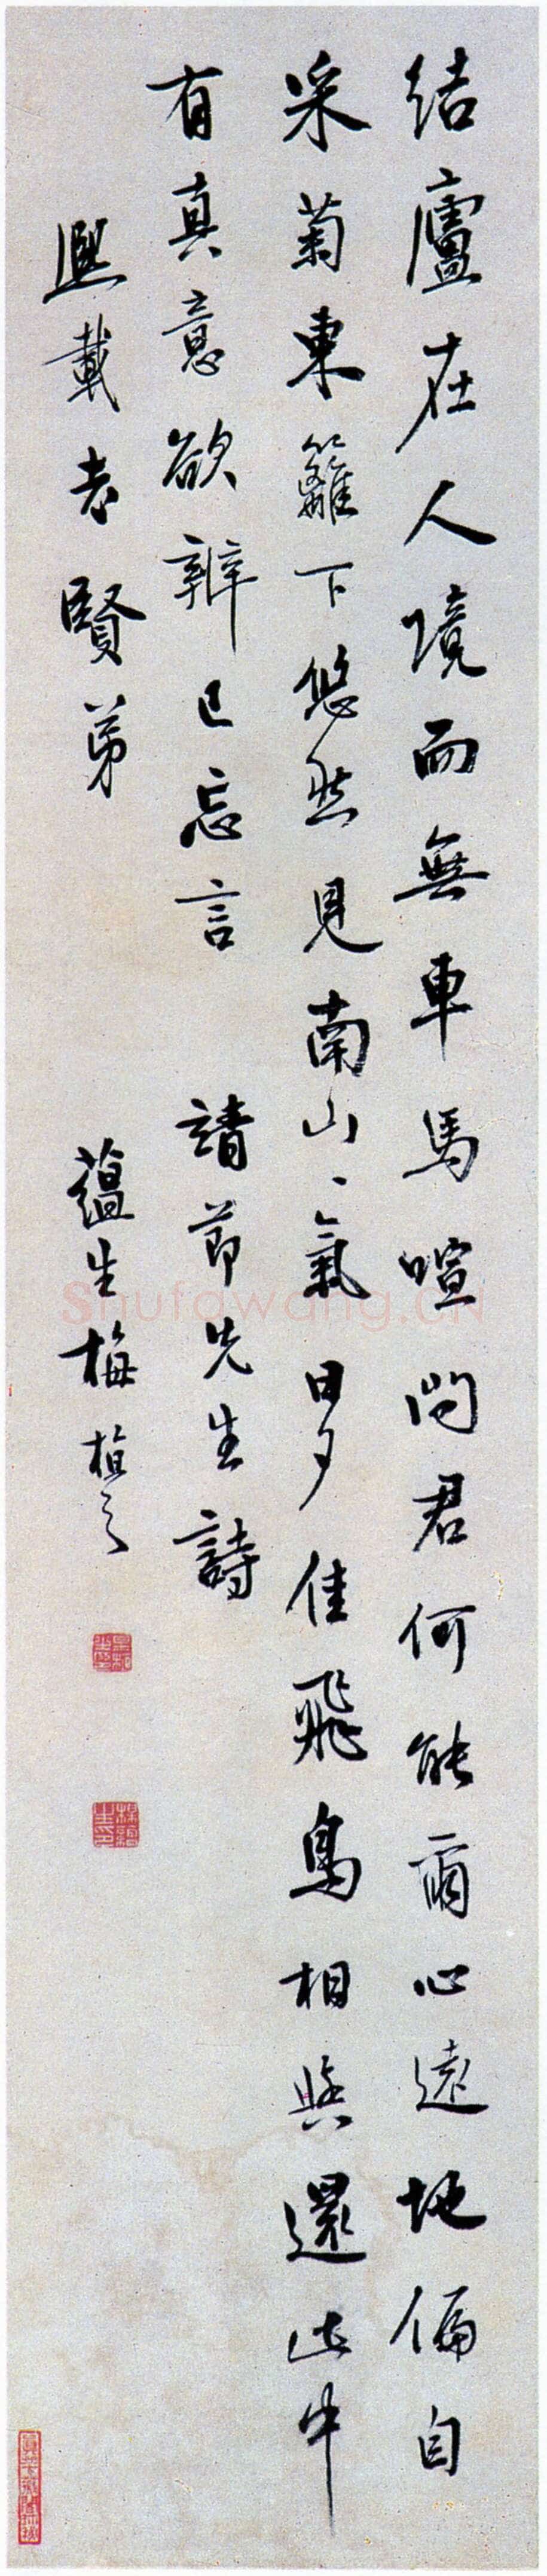 結廬在人境而無車馬喧問君何能爾心遠地偏自
采菊東籬下悠然見南山〻氣日夕佳飛鳥相與還此中
有真意欲辨已忘言 靖節先生詩
熙載老賢弟 蘊生梅植之
Shufawang.CN